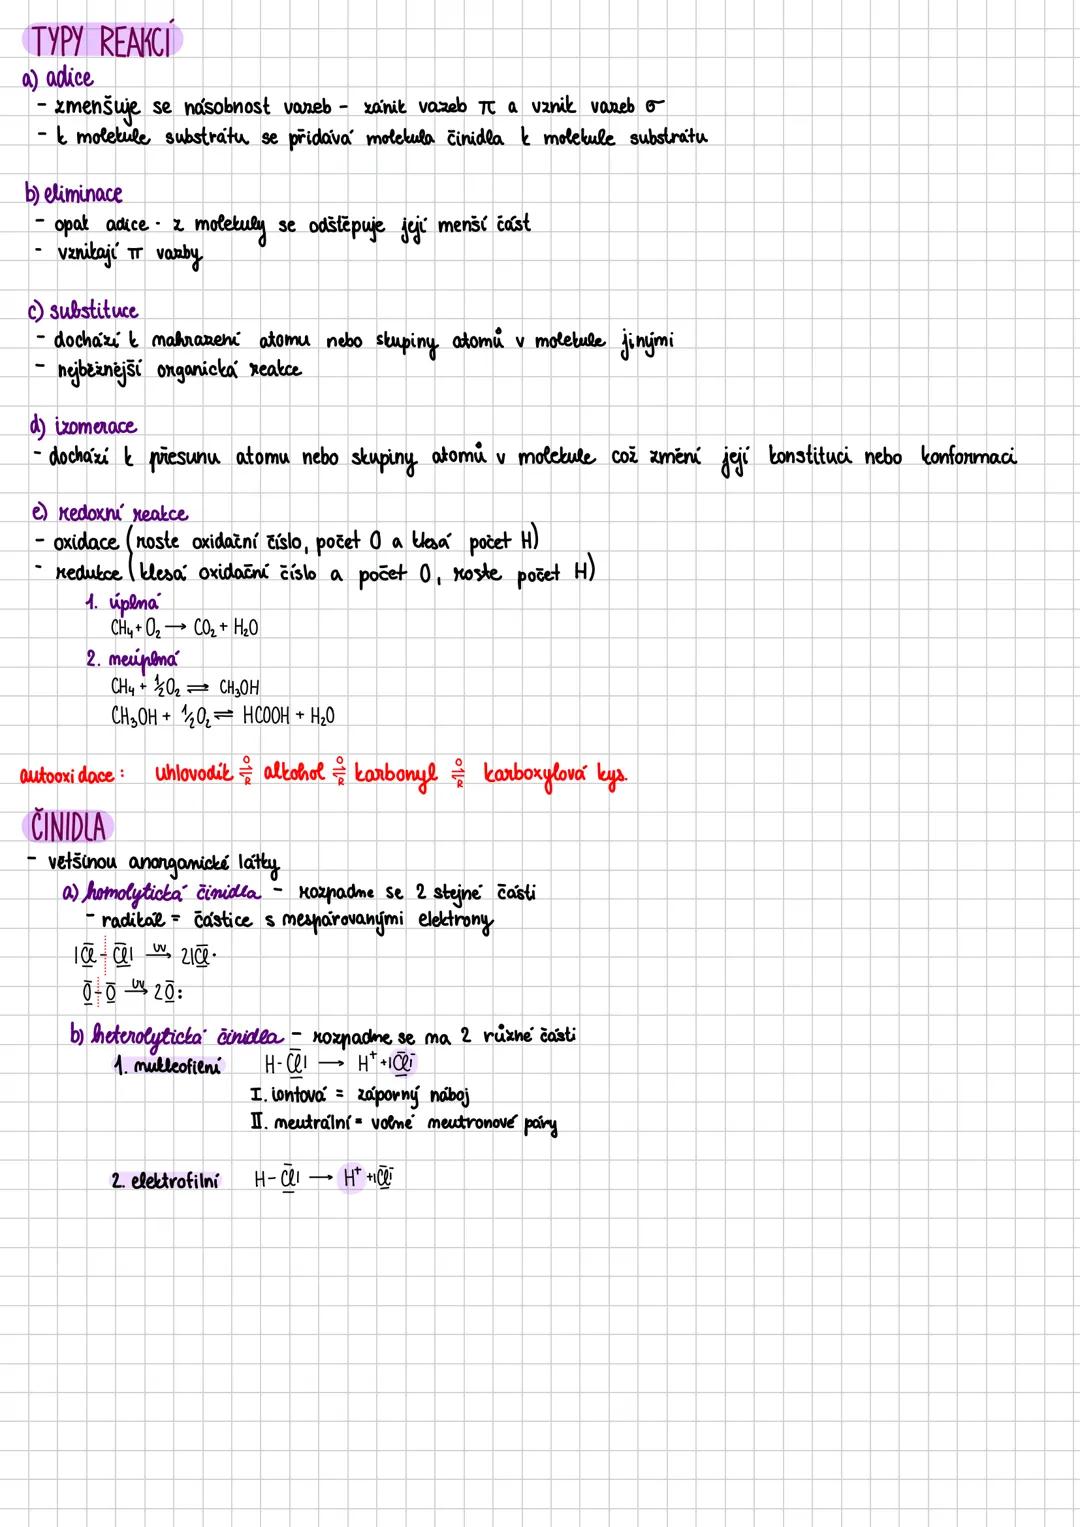 TYPY REAKCÍ
a) adice
- zmenšuje se násobnost vazeb - zánik vazeb π a vznik vazeb σ
- k molekule substrátu se přidává molekula činidla k molekule substrátu
b) eliminace
- opak adice - z molekuly se odštěpuje její menší část
- vznikají π vazby
c) substituce
- dochází k nahrazení atomu nebo skupiny atomů v molekule jinými
- nejběžnější organická reakce
d) izomerace
- dochází k přesunu atomu nebo skupiny atomů v molekule což změní její konstituci nebo konformaci
e) redoxní reakce
- oxidace (roste oxidační číslo, počet O a klesá počet H)
- redukce (klesá oxidační číslo a počet O, roste počet H)
1. úplná
CH₄ + O₂ → CO₂ + H₂O
2. neúplná
CH₄ + ½O₂ ⇌ CH₃OH
CH₃OH + ½O₂ ⇌ HCOOH + H₂O
autooxidace: uhlovodík O⇌R alkohol O⇌R karbonyl O⇌R karboxylová kys.
ČINIDLA
- většinou anorganické látky
a) homolytická činidla - rozpadne se 2 stejné části
- radikál = částice s nespárovanými elektrony
|C̅l̲ - C̅l̲| UV→ 2|C̅l̲·
O̲̅-O̲̅ UV→ 2O̲̅:
b) heterolytická činidla - rozpadne se na 2 různé části
1. nukleofilní H-C̅l̲| → H⁺ + |C̅l̲|⁻
I. iontová = záporný náboj
II. neutrální = volné neutronové páry
2. elektrofilní H-C̅l̲| → H⁺ + |C̅l̲|⁻